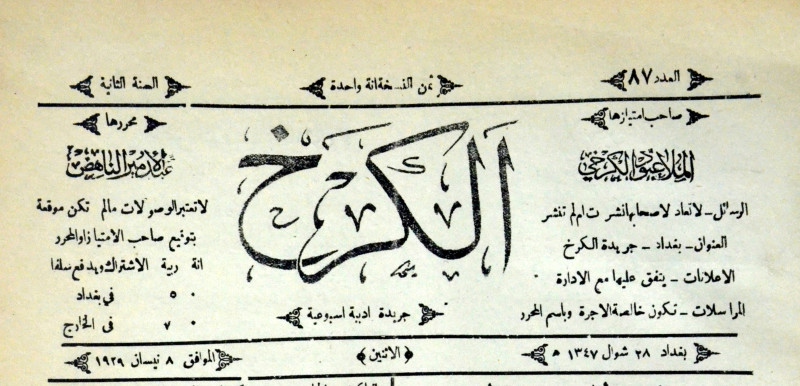 العدد ٨٧
ثمن النسخة انة واحدة
السنة الثانية
صاحب امتيازها
الملا عبود الكرخي
الرسائل – لا تعاد لاصحابها نشرت ام لم تنشر
العنوان – بغداد – جريدة الكرخ
الاعلانات – يتفق عليها مع الادارة
المراسلات – تكون خالصة الاجرة وباسم المحرر
الكرخ
جريدة ادبية اسبوعية
محررها
عبد الامير الناهض
لا تعتبر الوصولات مالم تكن موقعة
بتوقيع صاحب الامتياز او المحرر
الاشتراك ويدفع سلفا
في بغداد
في الخارج
بغداد ٢٨ شوال ١٣٤٧ هـ
الاثنين
الموافق ٨ نيسان ١٩٢٩